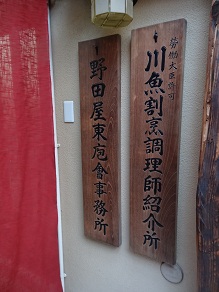 労働大臣許可
川魚割烹調理師紹介所
野田屋東庖會事務所